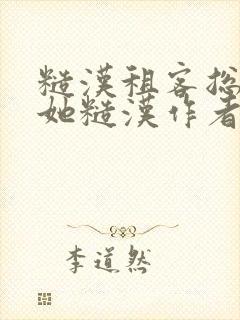 糙漢租客總
她糙漢作者
李道然